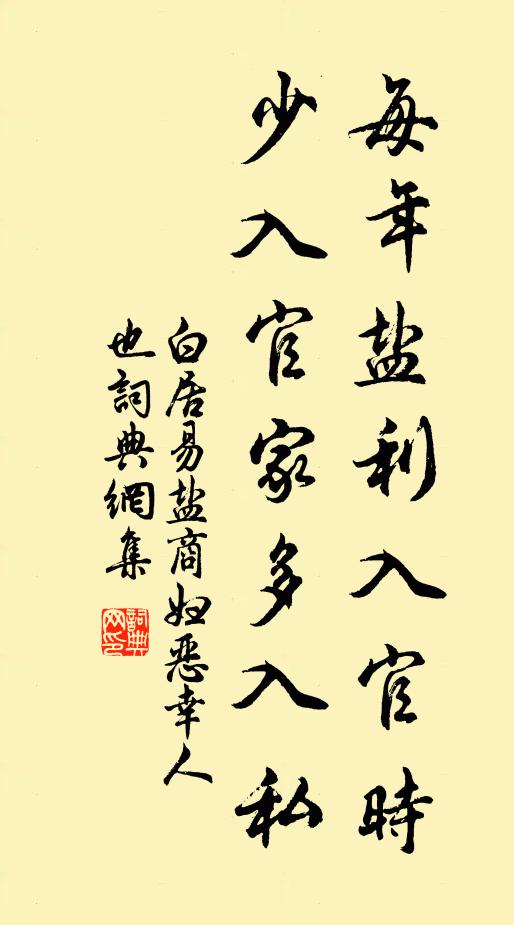 每年盐利入官時
少入官家多入私
白居易盐商妇惡幸人
也詞典網集
詞典
网印